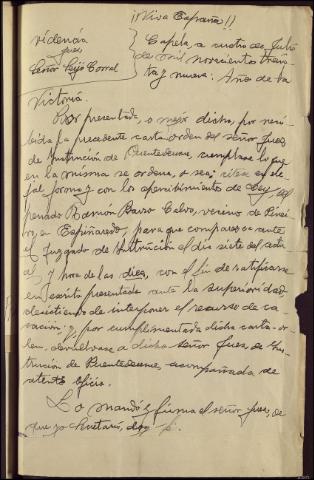 ¡¡Viva España!!
Providencia
Juez
Señor Seijo Corral
Capela, a cuatro de Julio
de mil novecientos trein-
ta y nueve. Año de la
Victoria.
Por presentada, o mejor dicho, por reci-
bida la precedente carta orden del señor Juez
de Instrucción de Puentedeume, cumplase lo que
en la misma se ordena, o sea; citese en le-
gal forma y con los apercibimientos de ley al
penado Ramón Barro Calvo, vecino de
a Espiñaredo, para que comparezca ante
el Juzgado de Instrucción el dia siete del actu-
al, y hora de las diez, con el fin de ratificarse
en escrito presentado ante la superioridad,
desistiendo de interponer el recurso de ca-
sacion; y por cumplimentada dicha carta-or-
den, devuelvase a dicho señor Juez de Ins-
trucción de Puentedeume, acompañada de
atento oficio.
Lo mandó y firma el señor Juez, de
que yo Secretario, doy fé.